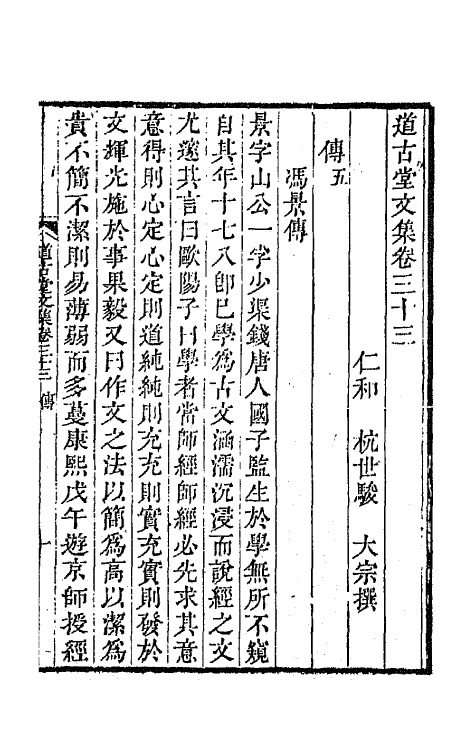 道古堂文集卷三十三
仁和 杭世駿 大宗撰
傳五
馮景傳
景字山公一字少渠錢唐人國子監生於學無所不窺
自其年十七八卽已學爲古文涵濡沉浸而說經之文
尤邃其言曰歐陽子曰學者當師經師經必先求其意
意得則心定心定則道純純則充充則實充實則發於
文輝光施於事果毅又曰作文之法以簡爲高以潔爲
貴不簡不潔則易薄弱而多蔓康熙戊午遊京師授經
道古堂文集卷三十三 傳 一